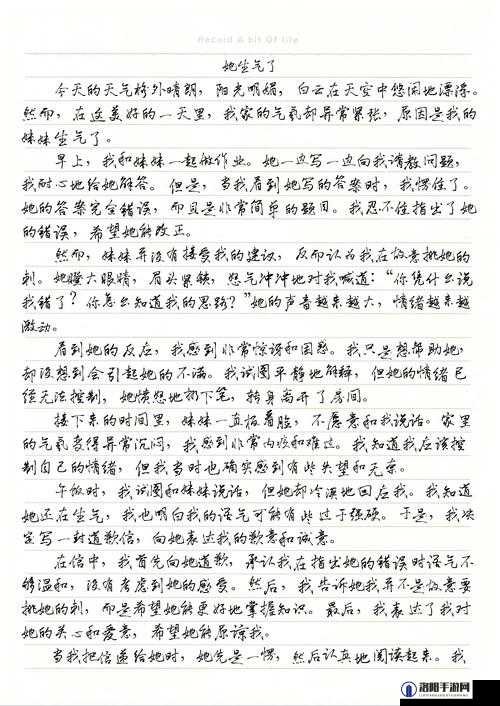 Record A bit Of life
她生气了
今天的天气格外晴朗，阳光明媚，白云在天空中悠闲地漂浮。
然而，在这美好的一天里，我家的气氛却异常紧张，原因是我的
妹妹生气了。
早上，我和妹妹一起做作业。她一边写一边向我请教问题，
我耐心地给她解答。但是，当我看到她写的答案时，我愣住了。
她的答案完全错误，而且是非常简单的题目。我忍不住指出了她
的错误，希望她能改正。
然而，妹妹并没有接受我的建议，反而认为我在故意挑她的
刺。她瞪大眼睛，眉头紧锁，怒气冲冲地对我喊道：“你凭什么说
我错了？你怎么知道我的思路？”她的声音越来越大，情绪越来越
激动。
看到她的反应，我感到非常惊讶和困惑。我只是想帮助她，
却没想到会引起她的不满。我试图平静地解释，但她的情绪已
经无法控制，她愤怒地扔下笔，转身离开了房间。
接下来的时间里，妹妹一直板着脸，不愿意和我说话。家里
的气氛变得异常沉闷，我感到非常内疚和难过。我知道我应该控
制自己的情绪，但我当时也确实感到有些失望和无奈。
午饭时，我试图和妹妹说话，但她却冷漠地回应我。我知道
她还在生气，我也明白我的语气可能有些过于强硬。于是，我决
定写一封道歉信，向她表达我的歉意和诚意。
在信中，我首先向她道歉，承认我在指出她的错误时语气不
够温和，没有考虑到她的感受。然后，我告诉她我并不是故意要
挑她的刺，而是希望她能更好地掌握知识。最后，我表达了我对
她的关心和爱意，希望她能原谅我。
当我把信递给她时，她先是一愣，然后认真地阅读起来。我
洛阳手游网